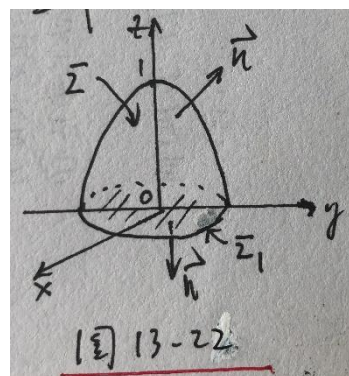 z
1
Σ
n
0
y
Σ₁
x
n
图 13-22